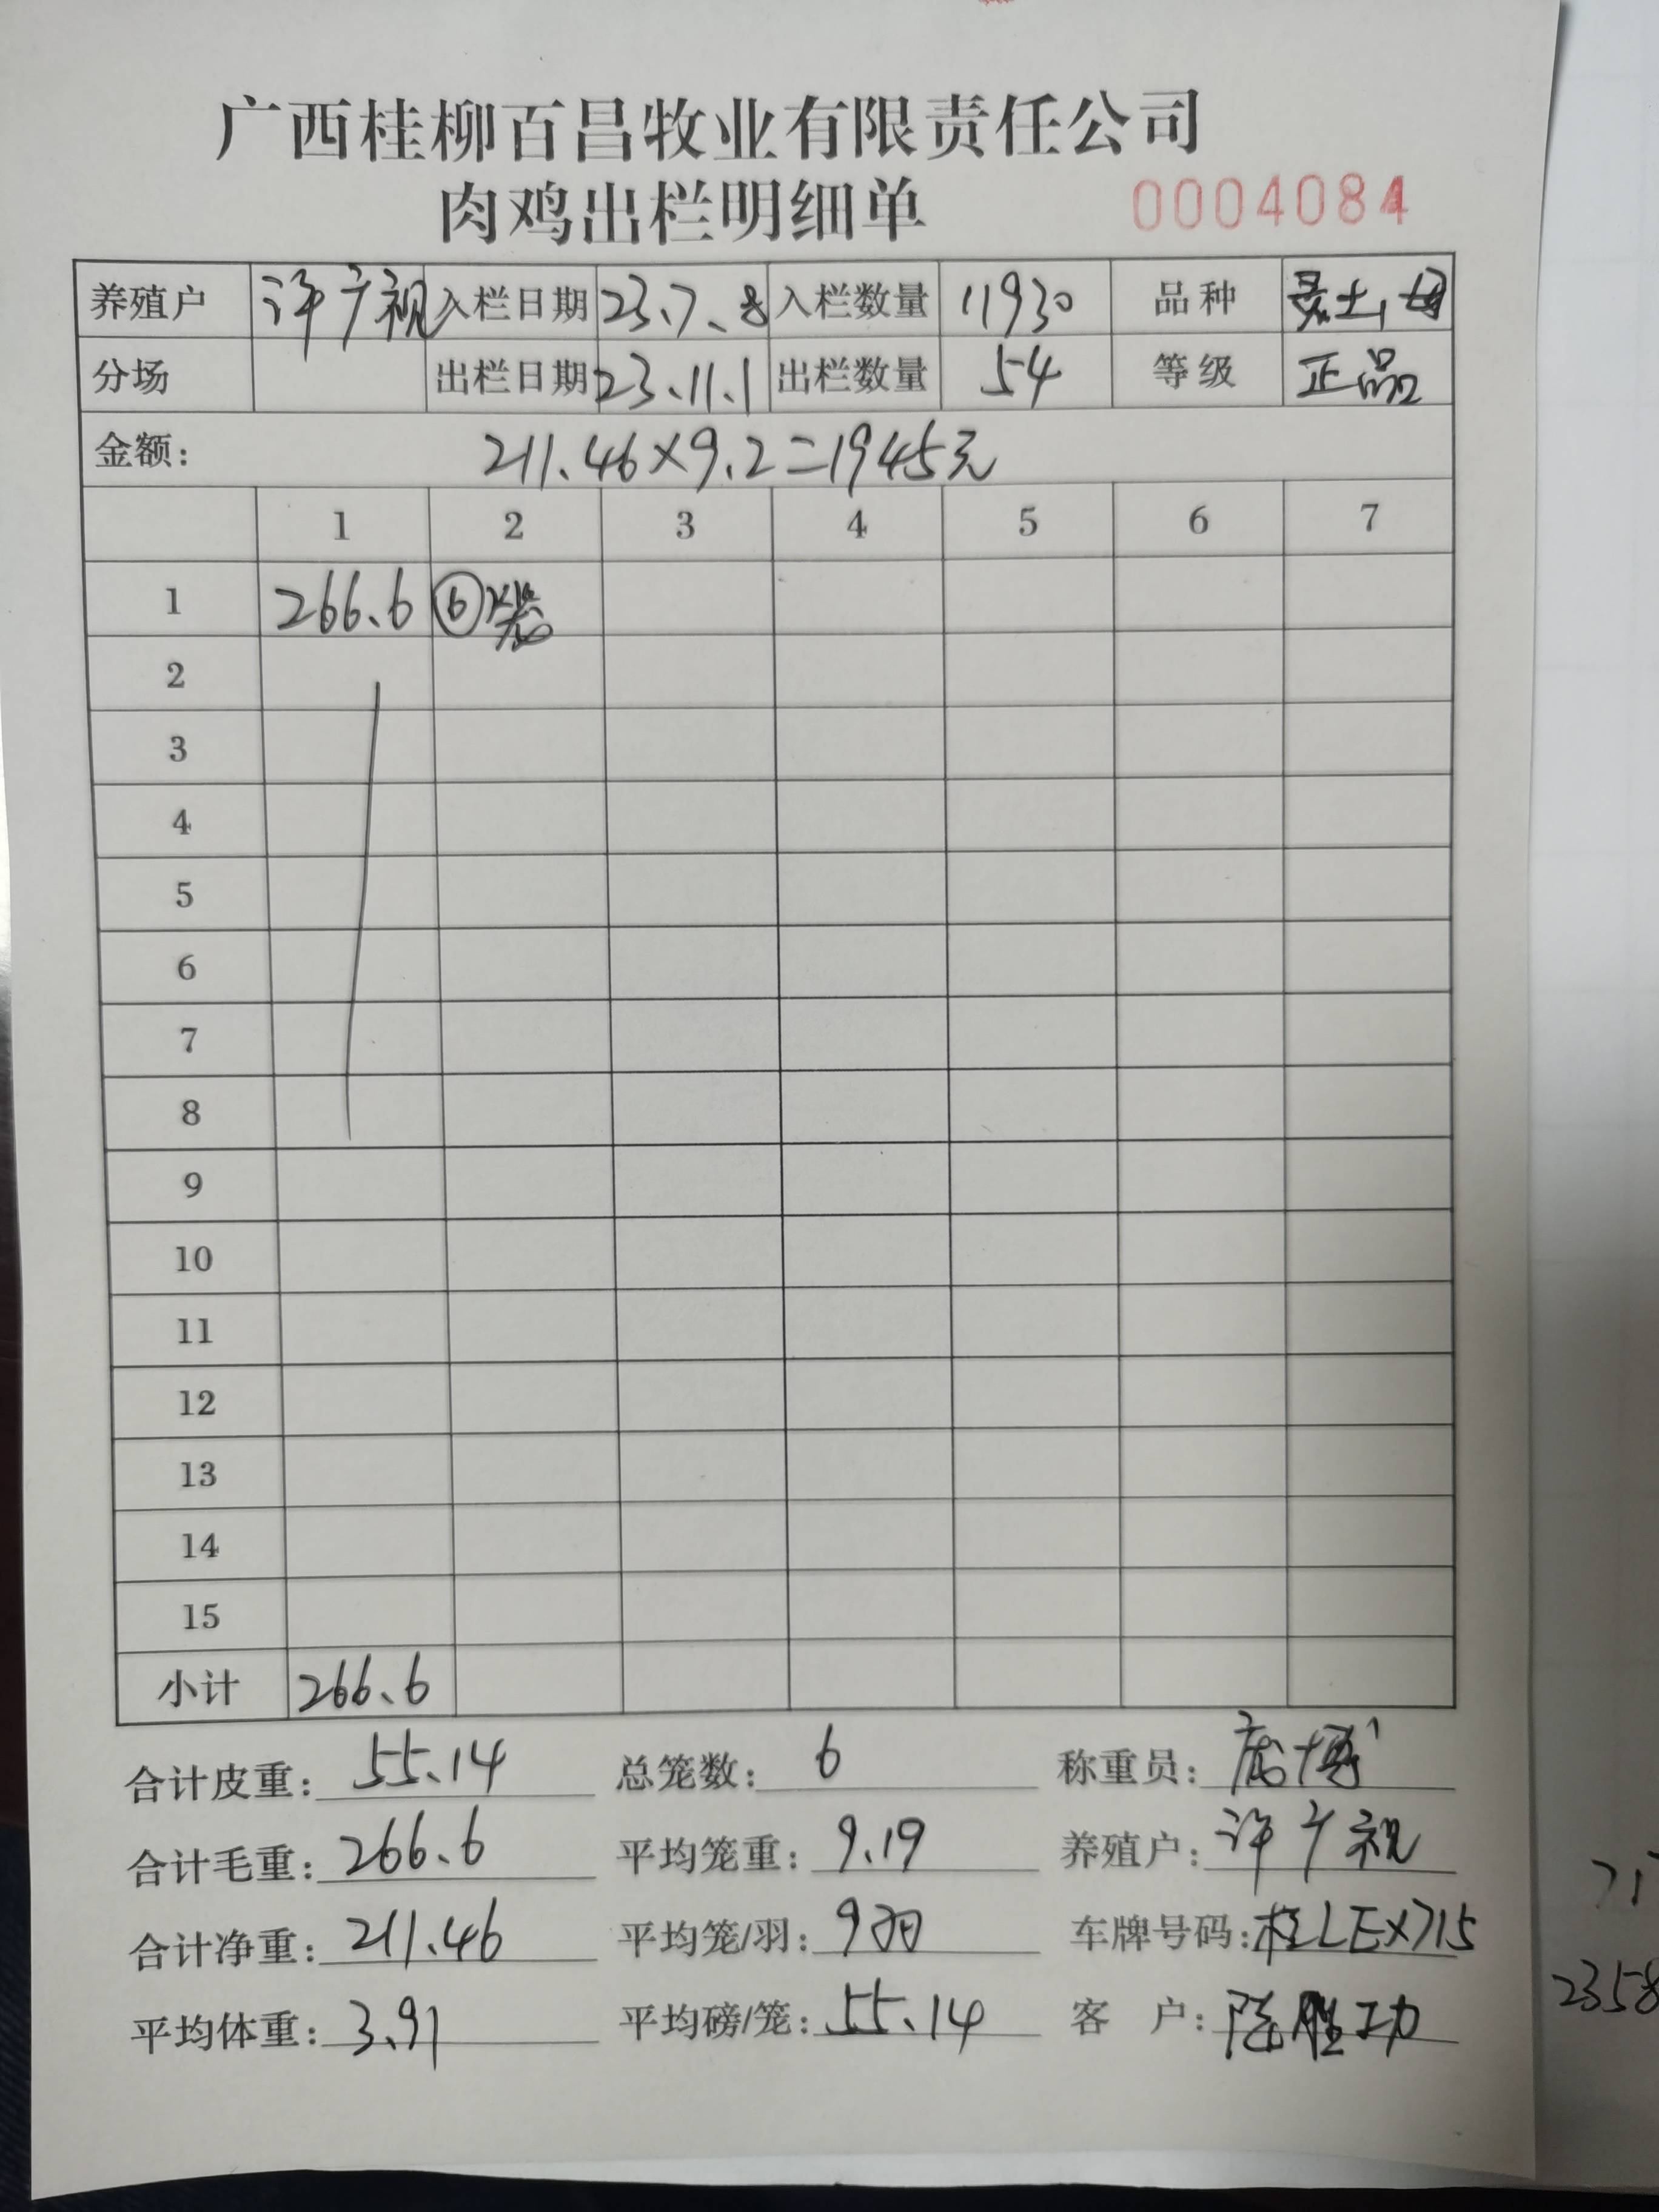 广西桂柳百昌牧业有限责任公司
肉鸡出栏明细单 0004084
养殖户 许广祝 入栏日期 23.7.8 入栏数量 11930 品种 土1母
分场 出栏日期 23.11.1 出栏数量 54 等级 正品
金额: 211.46×9.2=1945元
1 2 3 4 5 6 7
1 266.6 ⑥笼
2
3
4
5
6
7
8
9
10
11
12
13
14
15
小计 266.6
合计皮重: 55.14 总笼数: 6 称重员: 博
合计毛重: 266.6 平均笼重: 9.19 养殖户: 许广祝
合计净重: 211.46 平均笼/羽: 9羽 车牌号码: 桂LEX715
平均体重: 3.91 平均磅/笼: 55.14 客 户: 陈胜功
2358